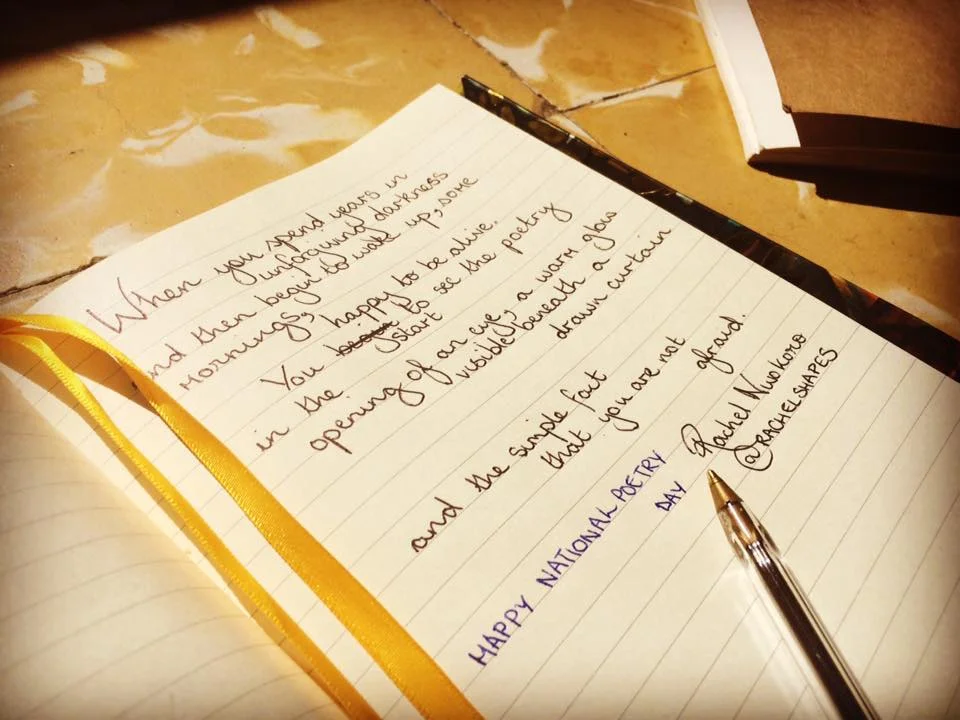 When you spend years in
unforgiving darkness
nd then begin to wake up, some
mornings, happy to be alive.
You start to see the poetry
in the
opening of an eye, a warm glow
visible, beneath a
drawn curtain
and the simple fact
that you are not
afraid.
Rachel Nwokoro
@RACHELSHAPES
HAPPY NATIONAL POETRY
DAY